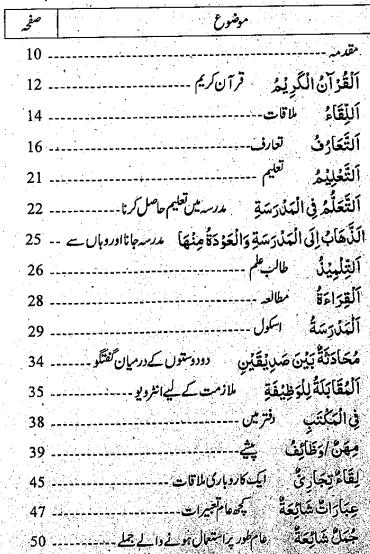 موضوع صفحہ
مقدمہ ---------- 10
اَلْقُرْآنُ الْكَرِيْمُ قرآن کریم ---------- 12
اَللِّقَاءُ ملاقات ---------- 14
اَلتَّعَارُفُ تعارف ---------- 16
اَلتَّعْلِيْمُ تعلیم ---------- 21
اَلتَّعَلُّمُ فِي الْمَدْرَسَةِ مدرسہ میں تعلیم حاصل کرنا ---------- 22
اَلذَّهَابُ اِلَى الْمَدْرَسَةِ وَالْعَوْدَةُ مِنْهَا مدرسہ جانا اور وہاں سے -- 25
اَلتِّلْمِيْذُ طالب علم ---------- 26
اَلْقِرَاءَةُ مطالعہ ---------- 28
اَلْمَدْرَسَةُ اسکول ---------- 29
مُحَادَثَةٌ بَيْنَ صَدِيْقَيْنِ دو دوستوں کے درمیان گفتگو ---------- 34
اَلْمُقَابَلَةُ لِلْوَظِيْفَةِ ملازمت کے لیے انٹرویو ---------- 35
فِي الْمَكْتَبِ دفتر میں ---------- 38
مِهَنٌ/وَظَائِفُ پیشے ---------- 39
لِقَاءٌ تِجَارِيٌّ ایک کاروباری ملاقات ---------- 45
عِبَارَاتٌ شَائِعَةٌ کچھ عام تعبیرات ---------- 47
جُمَلٌ شَائِعَةٌ عام طور پر استعمال ہونے والے جملے ---------- 50